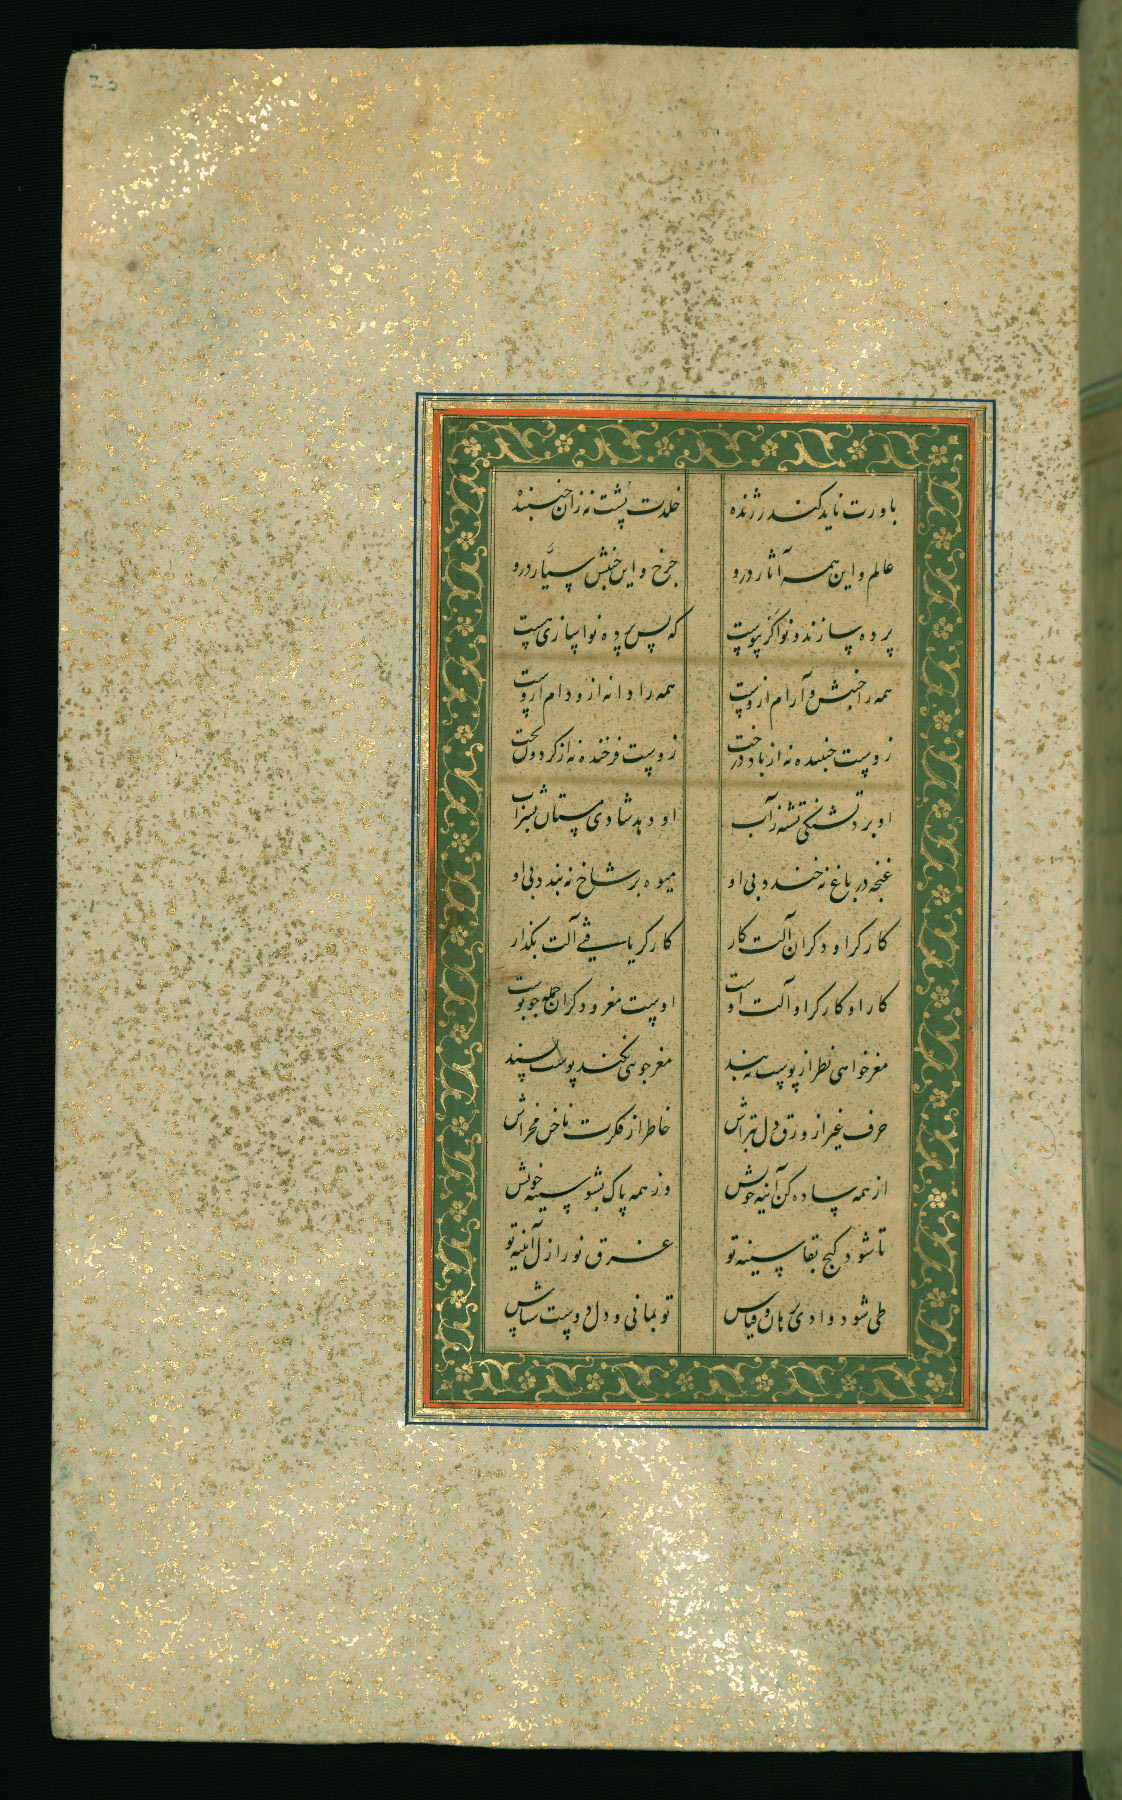 باورت ناید کندر ژنده خلدت پشت نه زان جنبنده
عالم و این همه آثار درو چرخ و این جنبش سیار درو
پرده سازنده نواگر نه پوست که پس پرده نواسازی هست
همه را جنبش و آرام ازوست همه را دانه ازو دام ازوست
زوست جنبنده نه از باد درخت زوست فرخنده نه از کردون بخت
او برد تشنکی تشنه ز آب او دهد شادی مستان شراب
غنچه در باغ نخندد بی او میوه بر شاخ نبندد بی او
کارکر او دکران آلت کار کارکر یافتی آلت بگذار
کار او کارکر او آلت اوست اوست مغز و دکران جمله چو پوست
مغز خواهی نظر از پوست ببند مغزجوی نکند پوست پسند
حرف غیر از ورق دل بتراش خاطر از فکرت ناخن مخراش
از همه ساده کن آینه خویش وز همه پاک بشو سینه خویش
تا شود کنج بقا سینه تو غرق نور ازل آینه تو
طی شود وادی برهان و قیاس تو بمانی و دل دوست شناس